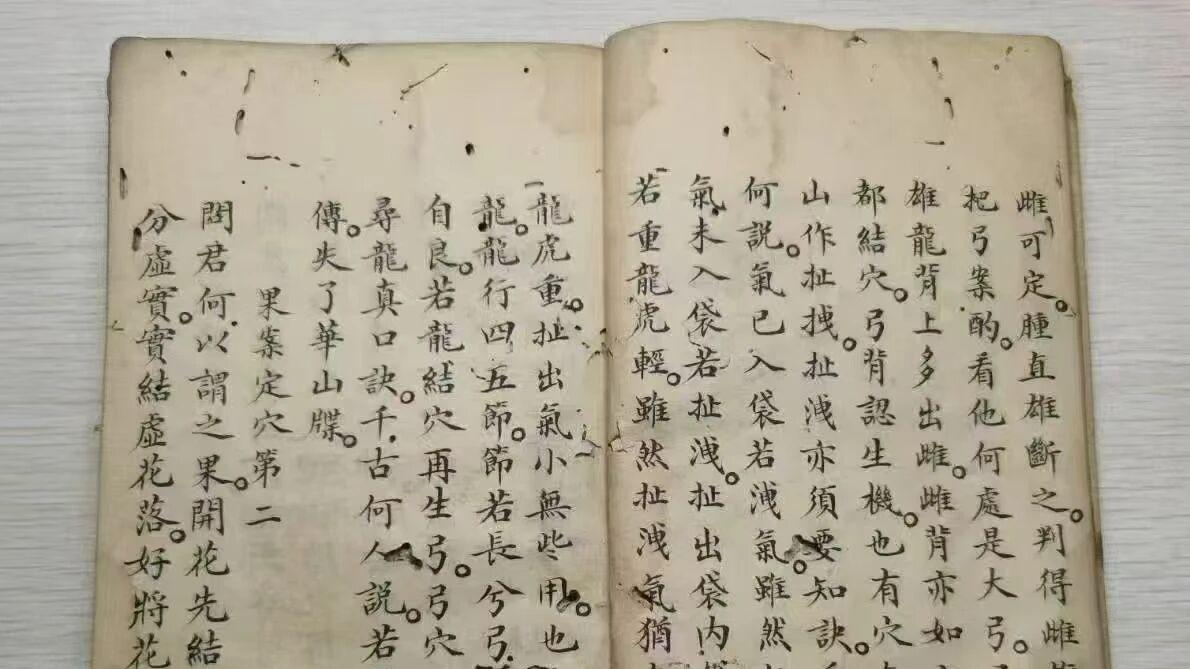 雌可定。腫直雄斷之。判得雌
把弓案酌。看他何處是大弓。
雄龍背上多出雌。雌背亦如
都結穴。弓背認生機。也有穴
山作扯拽。扯洩亦須要知訣。
何說。氣已入袋若洩氣。雖然
氣未入袋若扯洩。扯出袋內
若重龍虎輕。雖然扯洩氣猶
龍虎重。扯出氣小無些用。也
龍。龍行四五節。節若長兮弓
自良。若龍結穴再生弓。弓穴
尋龍真口訣。千古何人說。若
傳。失了華山牒。
果案定穴第二
問君何以謂之果。開花先結
分虛實。實結虛花落。好將花